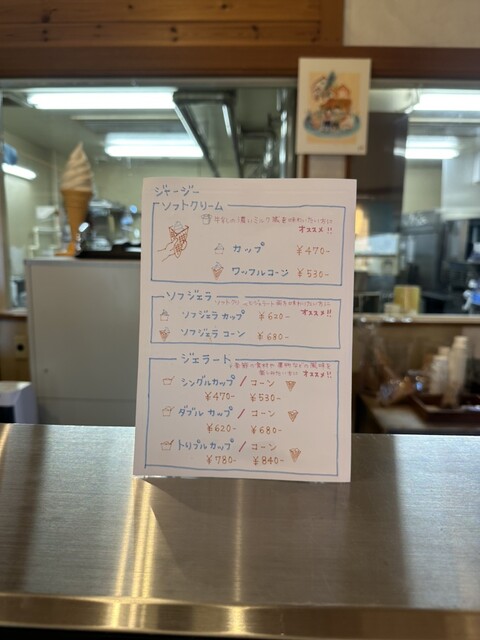 ジャージー
ソフトクリーム
牛乳の濃いミルク感を味わいたい方に
オススメ!!
カップ ¥470-
ワッフルコーン ¥530-
ソフジェラ
ソフトクリームとジェラート両方を味わいたい方に
オススメ!!
ソフジェラ カップ ¥620-
ソフジェラ コーン ¥680-
ジェラート
季節の素材や果物などの風味を
楽しみたい方に オススメ!!
シングルカップ / コーン
¥470- ¥530-
ダブル カップ / コーン
¥620- ¥680-
トリプルカップ / コーン
¥780- ¥840-